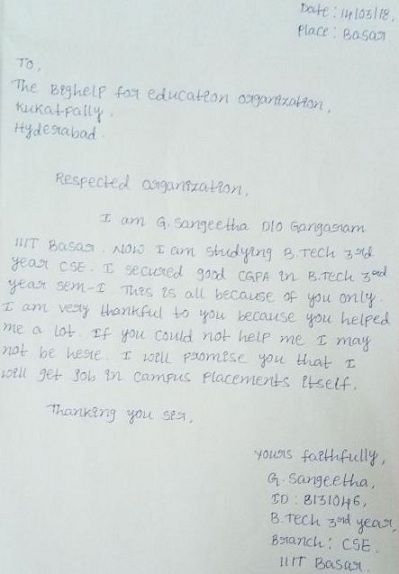 Date: 14/03/18,
Place: Basar
To,
The Bighelp for education organization,
Kukatpally.
Hyderabad.
Respected organization,
I am G. Sangeetha D/O Gangaram
IIIT Basar. Now I am studying B.Tech 3rd
year CSE. I secured good CGPA in B.Tech 3rd
year sem-I. This is all because of you only.
I am very thankful to you because you helped
me a lot. If you could not help me I may
not be here. I will promise you that I
will get job in campus placements itself.
Thanking you sir,
yours faithfully,
G. Sangeetha,
ID: B131046,
B.Tech 3rd year,
Branch: CSE.
IIIT Basar.